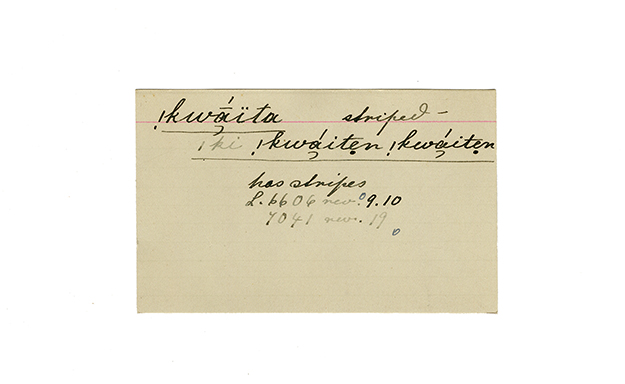 !kwą́ïta striped –
!ki !kwą́itẹn !kwą́itẹn
has stripes
L. 6606 rev. 9.10
7041 rev. 19